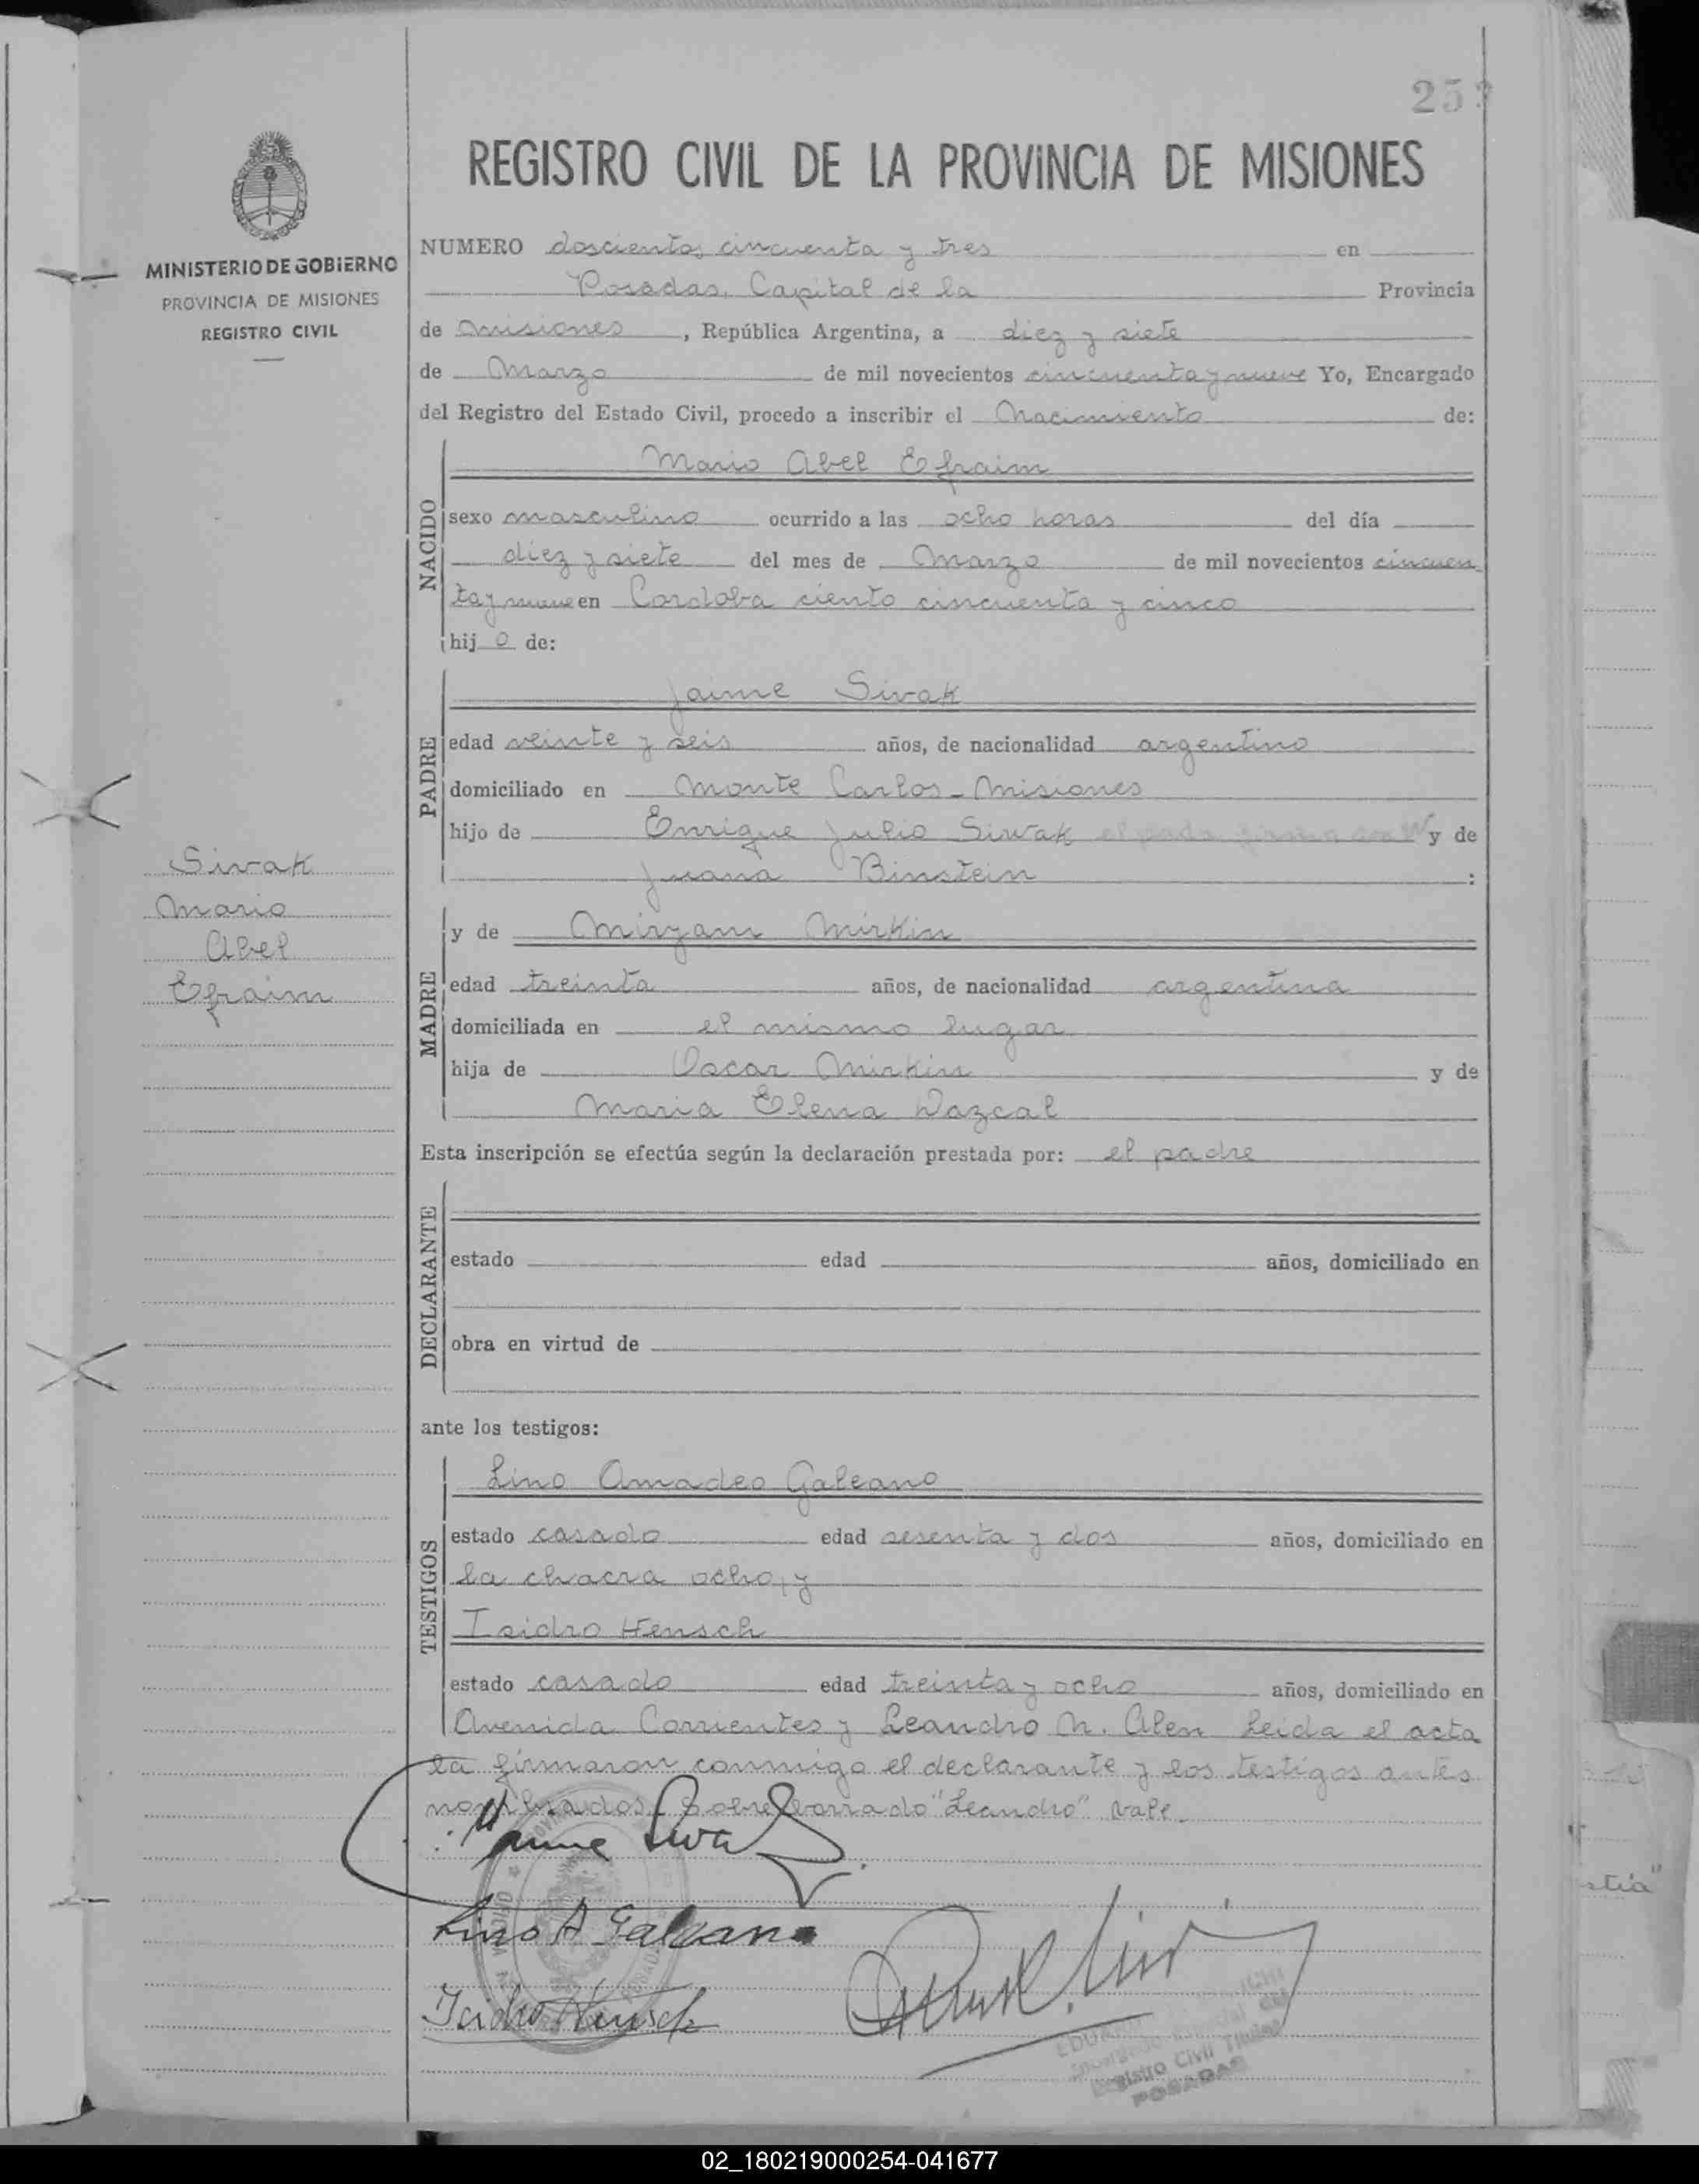 253
REGISTRO CIVIL DE LA PROVINCIA DE MISIONES
MINISTERIO DE GOBIERNO
PROVINCIA DE MISIONES
REGISTRO CIVIL
NUMERO doscientos cincuenta y tres en
Posadas, Capital de la Provincia
de Misiones, República Argentina, a diez y siete
de Marzo de mil novecientos cincuenta y nueve Yo, Encargado
del Registro del Estado Civil, procedo a inscribir el Nacimiento de:
NACIDO
Mario Abel Efraim
sexo masculino ocurrido a las ocho horas del día
diez y siete del mes de Marzo de mil novecientos cincuen
ta y nueve en Cordoba ciento cincuenta y cinco
hijo de:
PADRE
Jaime Sivak
edad veinte y seis años, de nacionalidad argentino
domiciliado en Monte Carlos - Misiones
hijo de Enrique Julio Siwak y de
Juana Binstein :
Sivak
Mario
Abel
Efraim
MADRE
y de Miryam Mirkin
edad treinta años, de nacionalidad argentina
domiciliada en el mismo lugar
hija de Oscar Mirkin y de
Maria Elena Wazcal
Esta inscripción se efectúa según la declaración prestada por: el padre
DECLARANTE
estado edad años, domiciliado en
obra en virtud de
ante los testigos:
TESTIGOS
Lino Amadeo Galeano
estado casado edad sesenta y dos años, domiciliado en
la chacra ocho, y
Isidro Hensch
estado casado edad treinta y ocho años, domiciliado en
Avenida Corrientes y Leandro N. Alen Leida el acta
la firmaron conmigo el declarante y los testigos antes
nombrados. Sobre borrado "Leandro" vale
Jaime Sivak
Lino A Galeano
Isidro Hensch
Registro Civil Titular
POSADAS
02_180219000254-041677